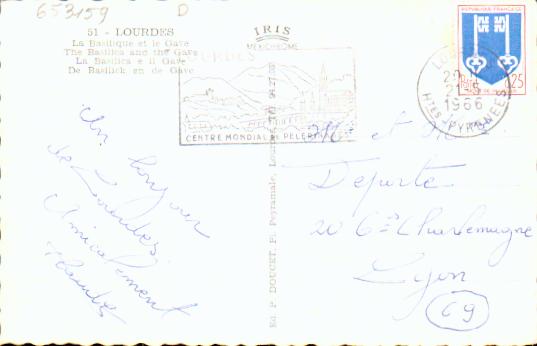 653159 D
51 - LOURDES
La Basilique et le Gave
The Basilica and the Gave
La Basilica e il Gave
De Basiliek en de Gave
IRIS
MEXICHROME
LOURDES
CENTRE MONDIAL DE PELERINAGE
REPUBLIQUE FRANÇAISE
0,25
1966
HTES PYRENEES
Ed. P. DOUCET, Pl. Peyramale, LOURDES
Un bonjour
de Lourdes
Amicalement
et Mme
Deporte
20 Cs Charlemagne
Lyon
69